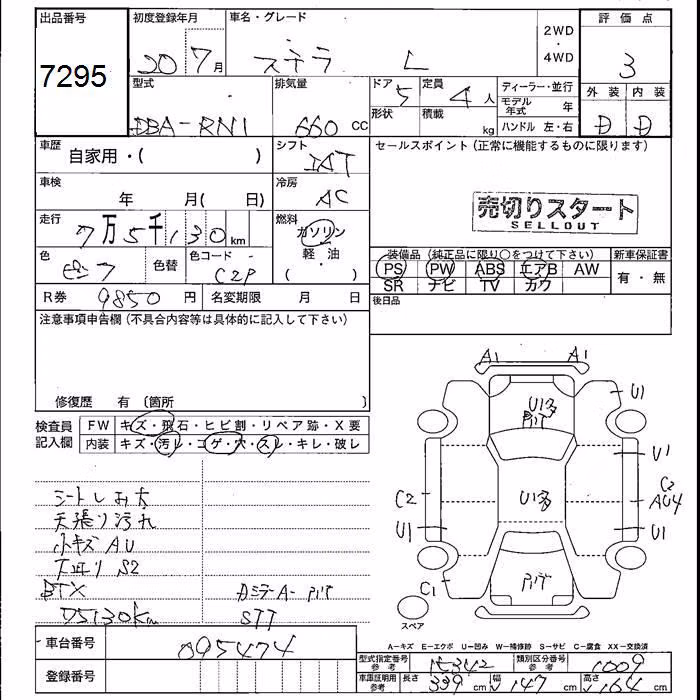 出品番号
7295
初度登録年月
20 7月
車名・グレード
ステラ L
2WD・4WD
評価点
3
型式
DBA-RN1
排気量
660 CC
ドア
5
形状
定員
4人
積載 kg
ディーラー・並行
モデル年式 年
ハンドル 左・右
外装 内装
D D
車歴
自家用・( )
シフト
IAT
セールスポイント(正常に機能するものに限ります)
車検
年 月( 日)
冷房
AC
売切りスタート
SELLOUT
走行
7万5千130km
燃料
ガソリン
軽・油
( )
色
色替
色コード
C2P
装備品(純正品に限り○をつけて下さい)
新車保証書
PS PW ABS エアB AW
有・無
SR ナビ TV カワ
R券 9850円
名変期限 月 日
後日品
注意事項申告欄(不具合内容等は具体的に記入して下さい)
修復歴 有 〔箇所 〕
検査員記入欄
FW キズ・飛石・ヒビ割・リペア跡・X要
内装 キズ・汚レ・コゲ・穴・スレ・キレ・破レ
シートしみ大
天張り汚れ
小キズ AU
下廻り S2
BTX
75130km
カミラーA- PIT
STT
A1 A1
U1多
PIT
U1
U1
C2
U1多
C2
AU4
U1
U1
C1
PIT
スペア
A-キズ E-エクボ U-凹み W-補修跡 S-サビ C-腐食 XX-交換済
車台番号
095474
登録番号
型式指定番号 参考
15342
類別区分番号 参考
1009
車庫証明用 参考
長さ 339cm
幅 147cm
高さ 164cm